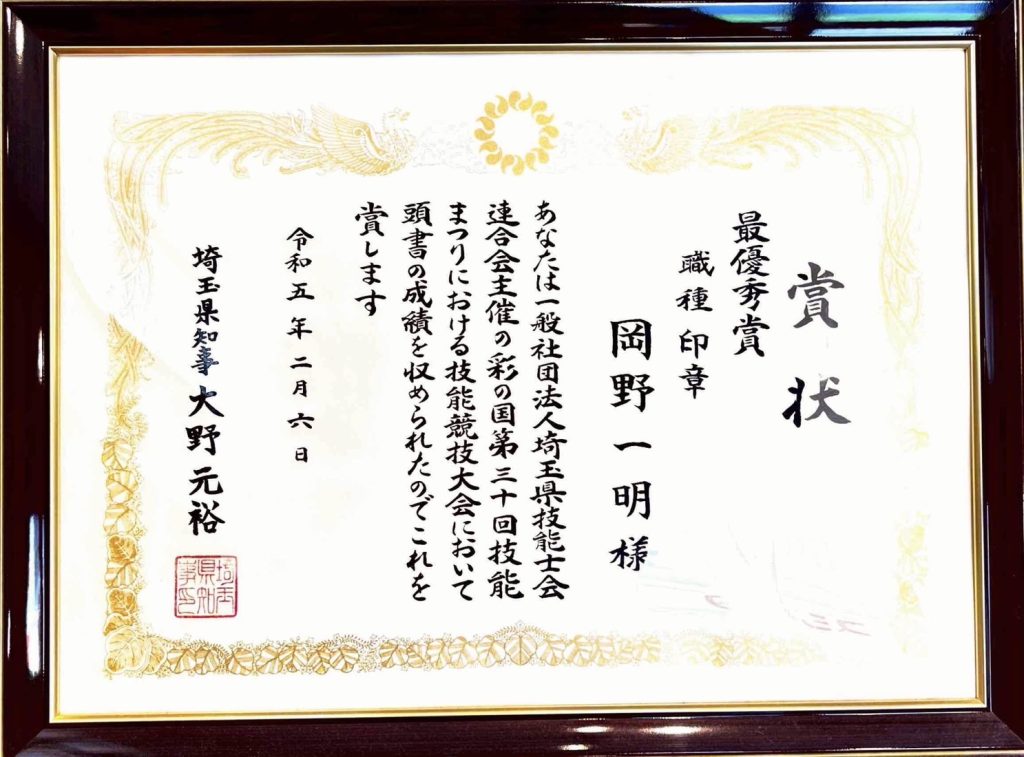 賞状
最優秀賞
職種 印章
岡野一明様
あなたは一般社団法人埼玉県技能士会
連合会主催の彩の国第三十回技能
まつりにおける技能競技大会において
頭書の成績を収められたのでこれを
賞します
令和五年二月六日
埼玉県知事 大野元裕
埼玉
県知
事印